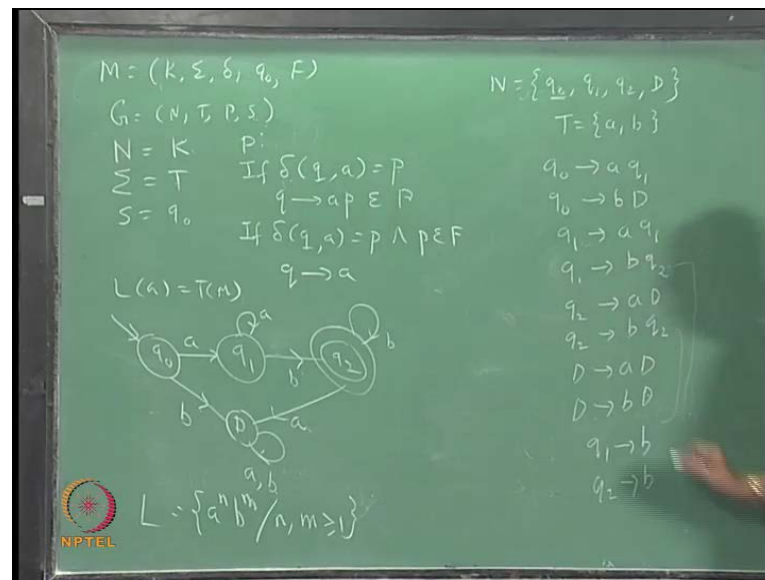 M = (K, Σ, δ, q₀, F)
G = (N, T, P, S)
N = K
Σ = T
S = q₀
P:
If δ(q, a) = p
q → ap ε P
If δ(q, a) = p ∧ p ε F
q → a
L(G) = T(M)
q₀
a
q₁
a
b
q₂
b
b
D
a
a, b
L = {aⁿbᵐ/n, m ≥ 1}
NPTEL
N = {q₀, q₁, q₂, D}
T = {a, b}
q₀ → a q₁
q₀ → b D
q₁ → a q₁
q₁ → b q₂
q₂ → a D
q₂ → b q₂
D → a D
D → b D
q₁ → b
q₂ → b